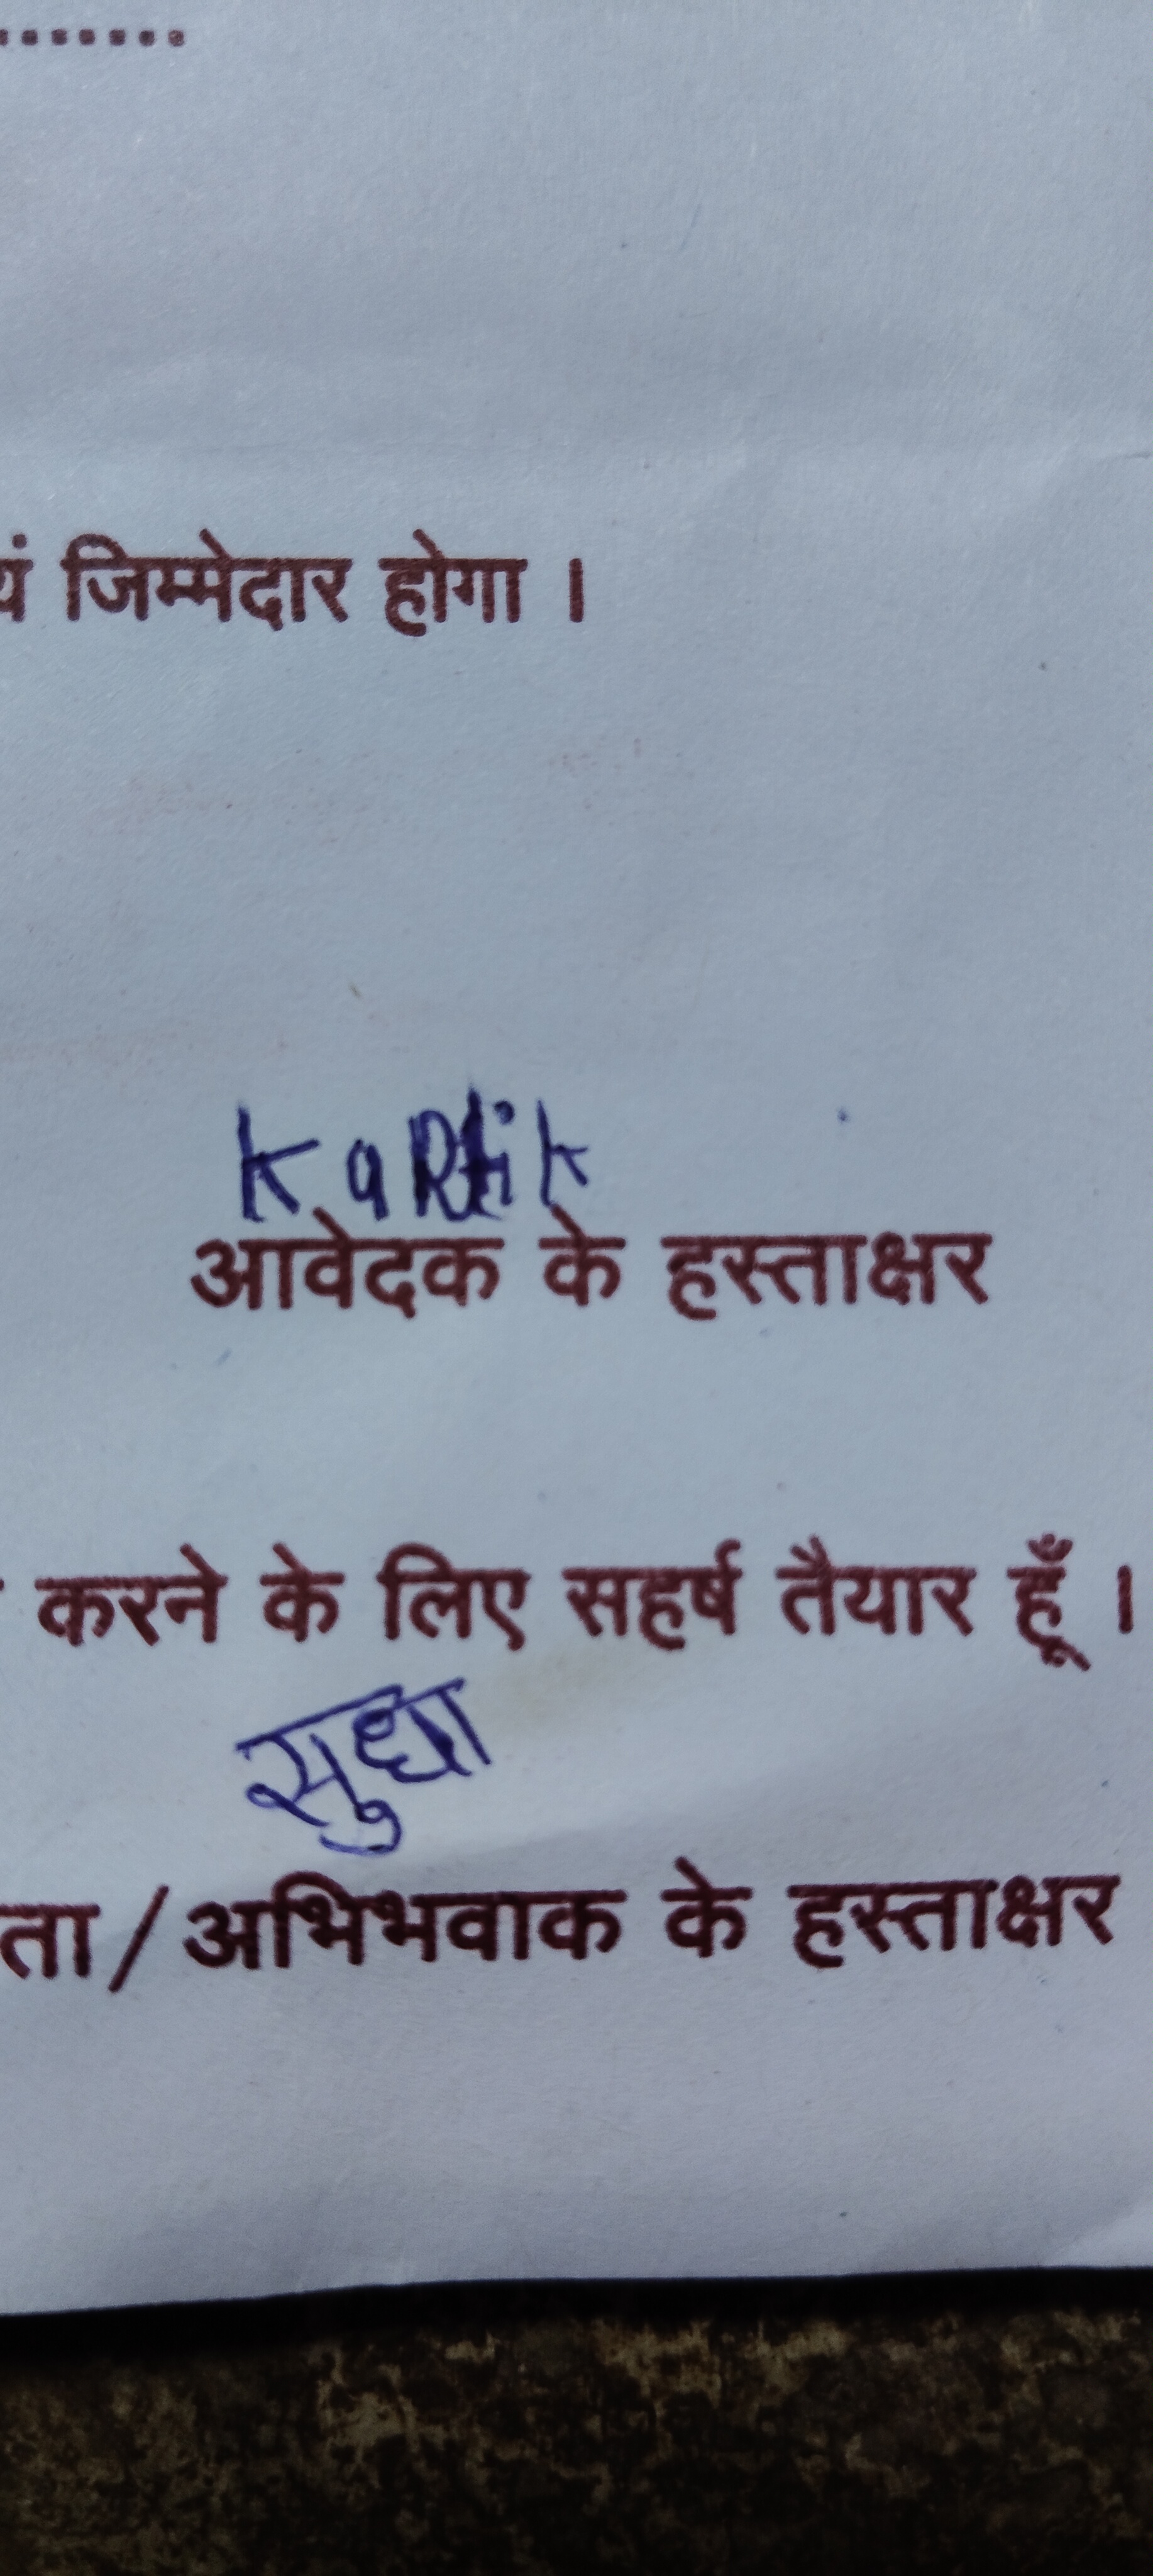 .......
यं जिम्मेदार होगा ।
KaRtik
आवेदक के हस्ताक्षर
करने के लिए सहर्ष तैयार हूँ ।
सुधा
ता/अभिभवाक के हस्ताक्षर